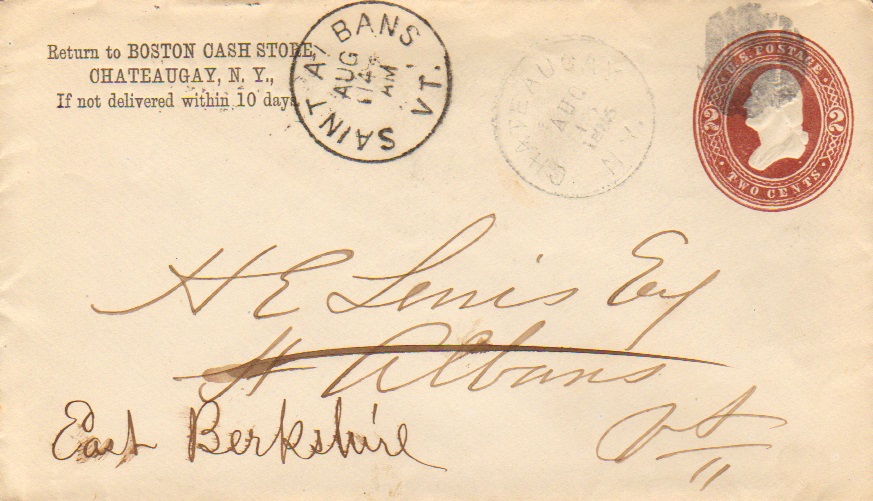 Return to BOSTON CASH STORE,
CHATEAUGAY, N. Y.,
If not delivered within 10 days.
SAINT ALBANS VT.
AUG
14
AM
CHATEAUGAY N.Y.
AUG
U.S. POSTAGE
2 2
TWO CENTS
H E Lewis Esq
St Albans
Vt
East Berkshire